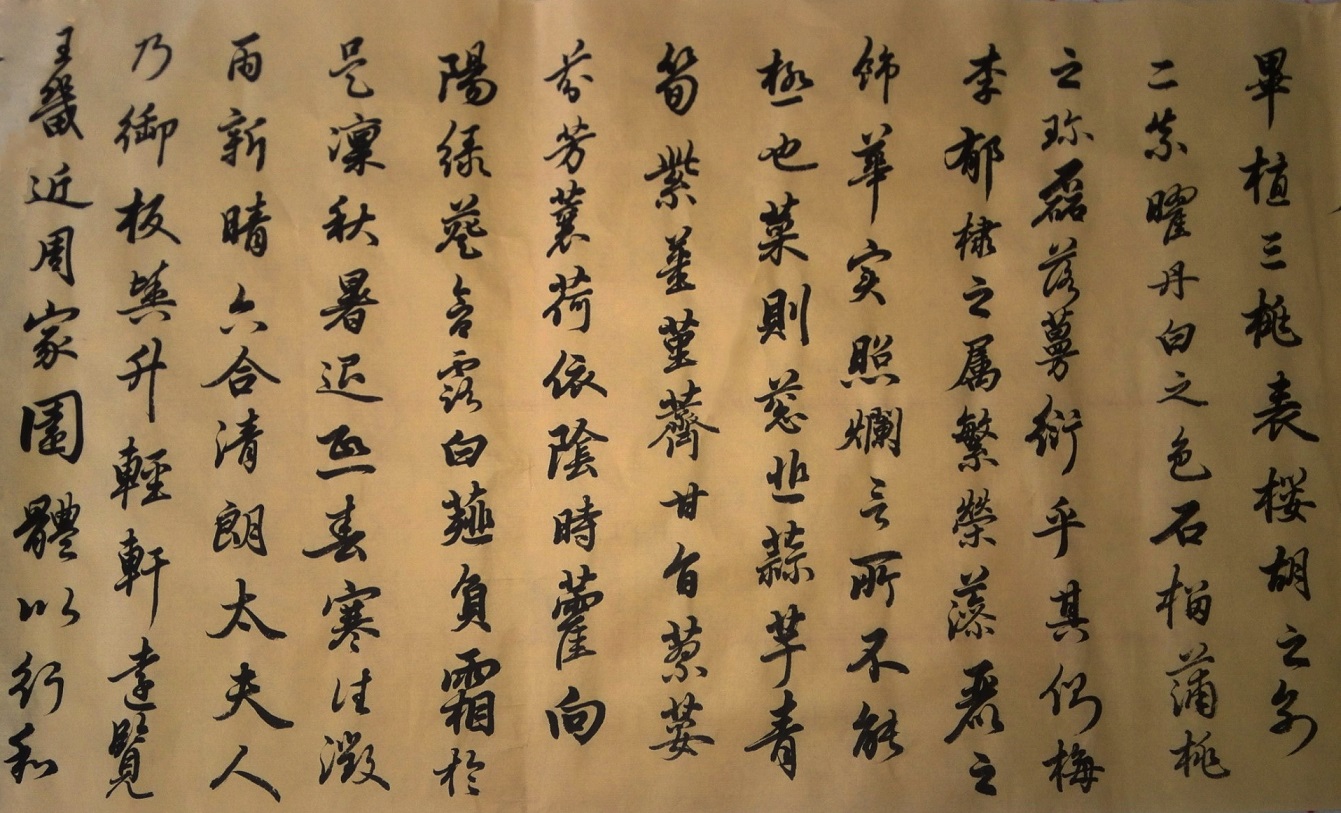 畢植三桃表櫻胡之别
二柰曜丹白之色石榴蒲桃
之珎磊落蔓衍乎其側梅
李郁棣之属繁榮藻麗之
飾華实照爛言所不能
極也菜則葱韭蒜芋青
筍紫薑菫薺甘旨蓼荽
芬芳蘘荷依陰時藿向
陽緑葵含露白薤負霜於
是凛秋暑退熙春寒往微
雨新晴六合清朗太夫人
乃御板輿升輕軒遠覽
王畿近周家園體以行和